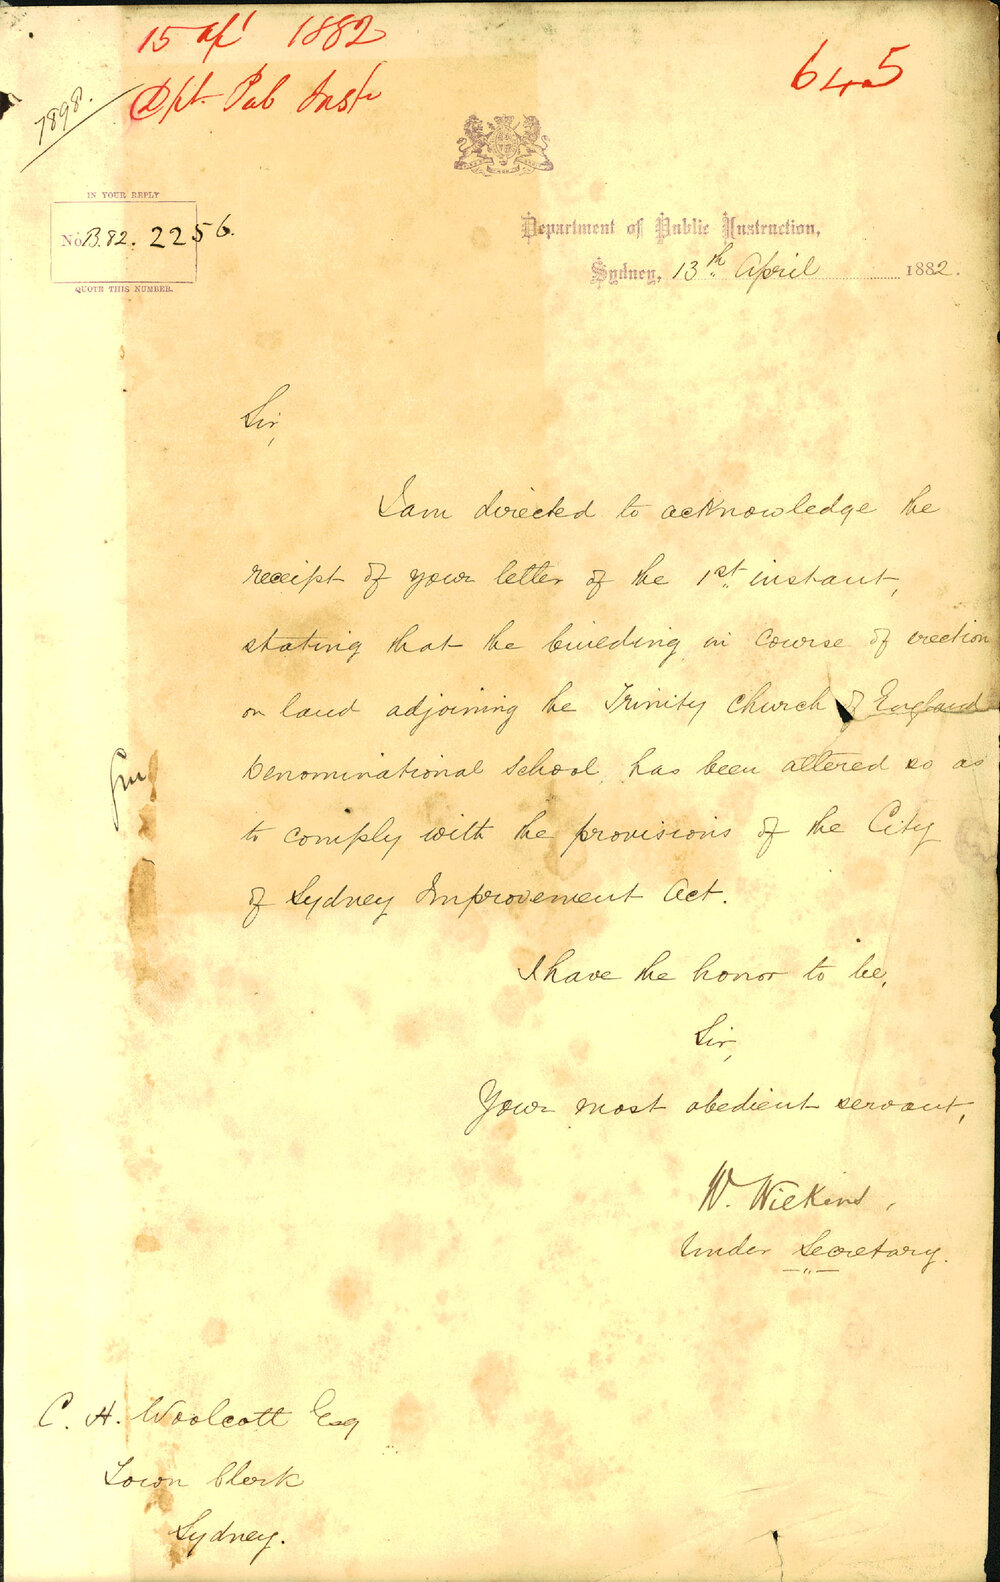 15 Apl 1882
645
Dpt. Pub Inst
1898.
IN YOUR REPLY
No B.82. 2256.
QUOTE THIS NUMBER.
Department of Public Instruction,
Sydney, 13th April 1882.
Sir,
I am directed to acknowledge the
receipt of your letter of the 1st. instant,
stating that the building in course of erection
on land adjoining the Trinity Church of England
Denominational School, has been altered so as
to comply with the provisions of the City
of Sydney Improvement Act.
I have the honor to be,
Sir,
Your most obedient servant,
W. Wilkins,
Under Secretary.
C. H. Woolcott Esq
Town Clerk
Sydney.